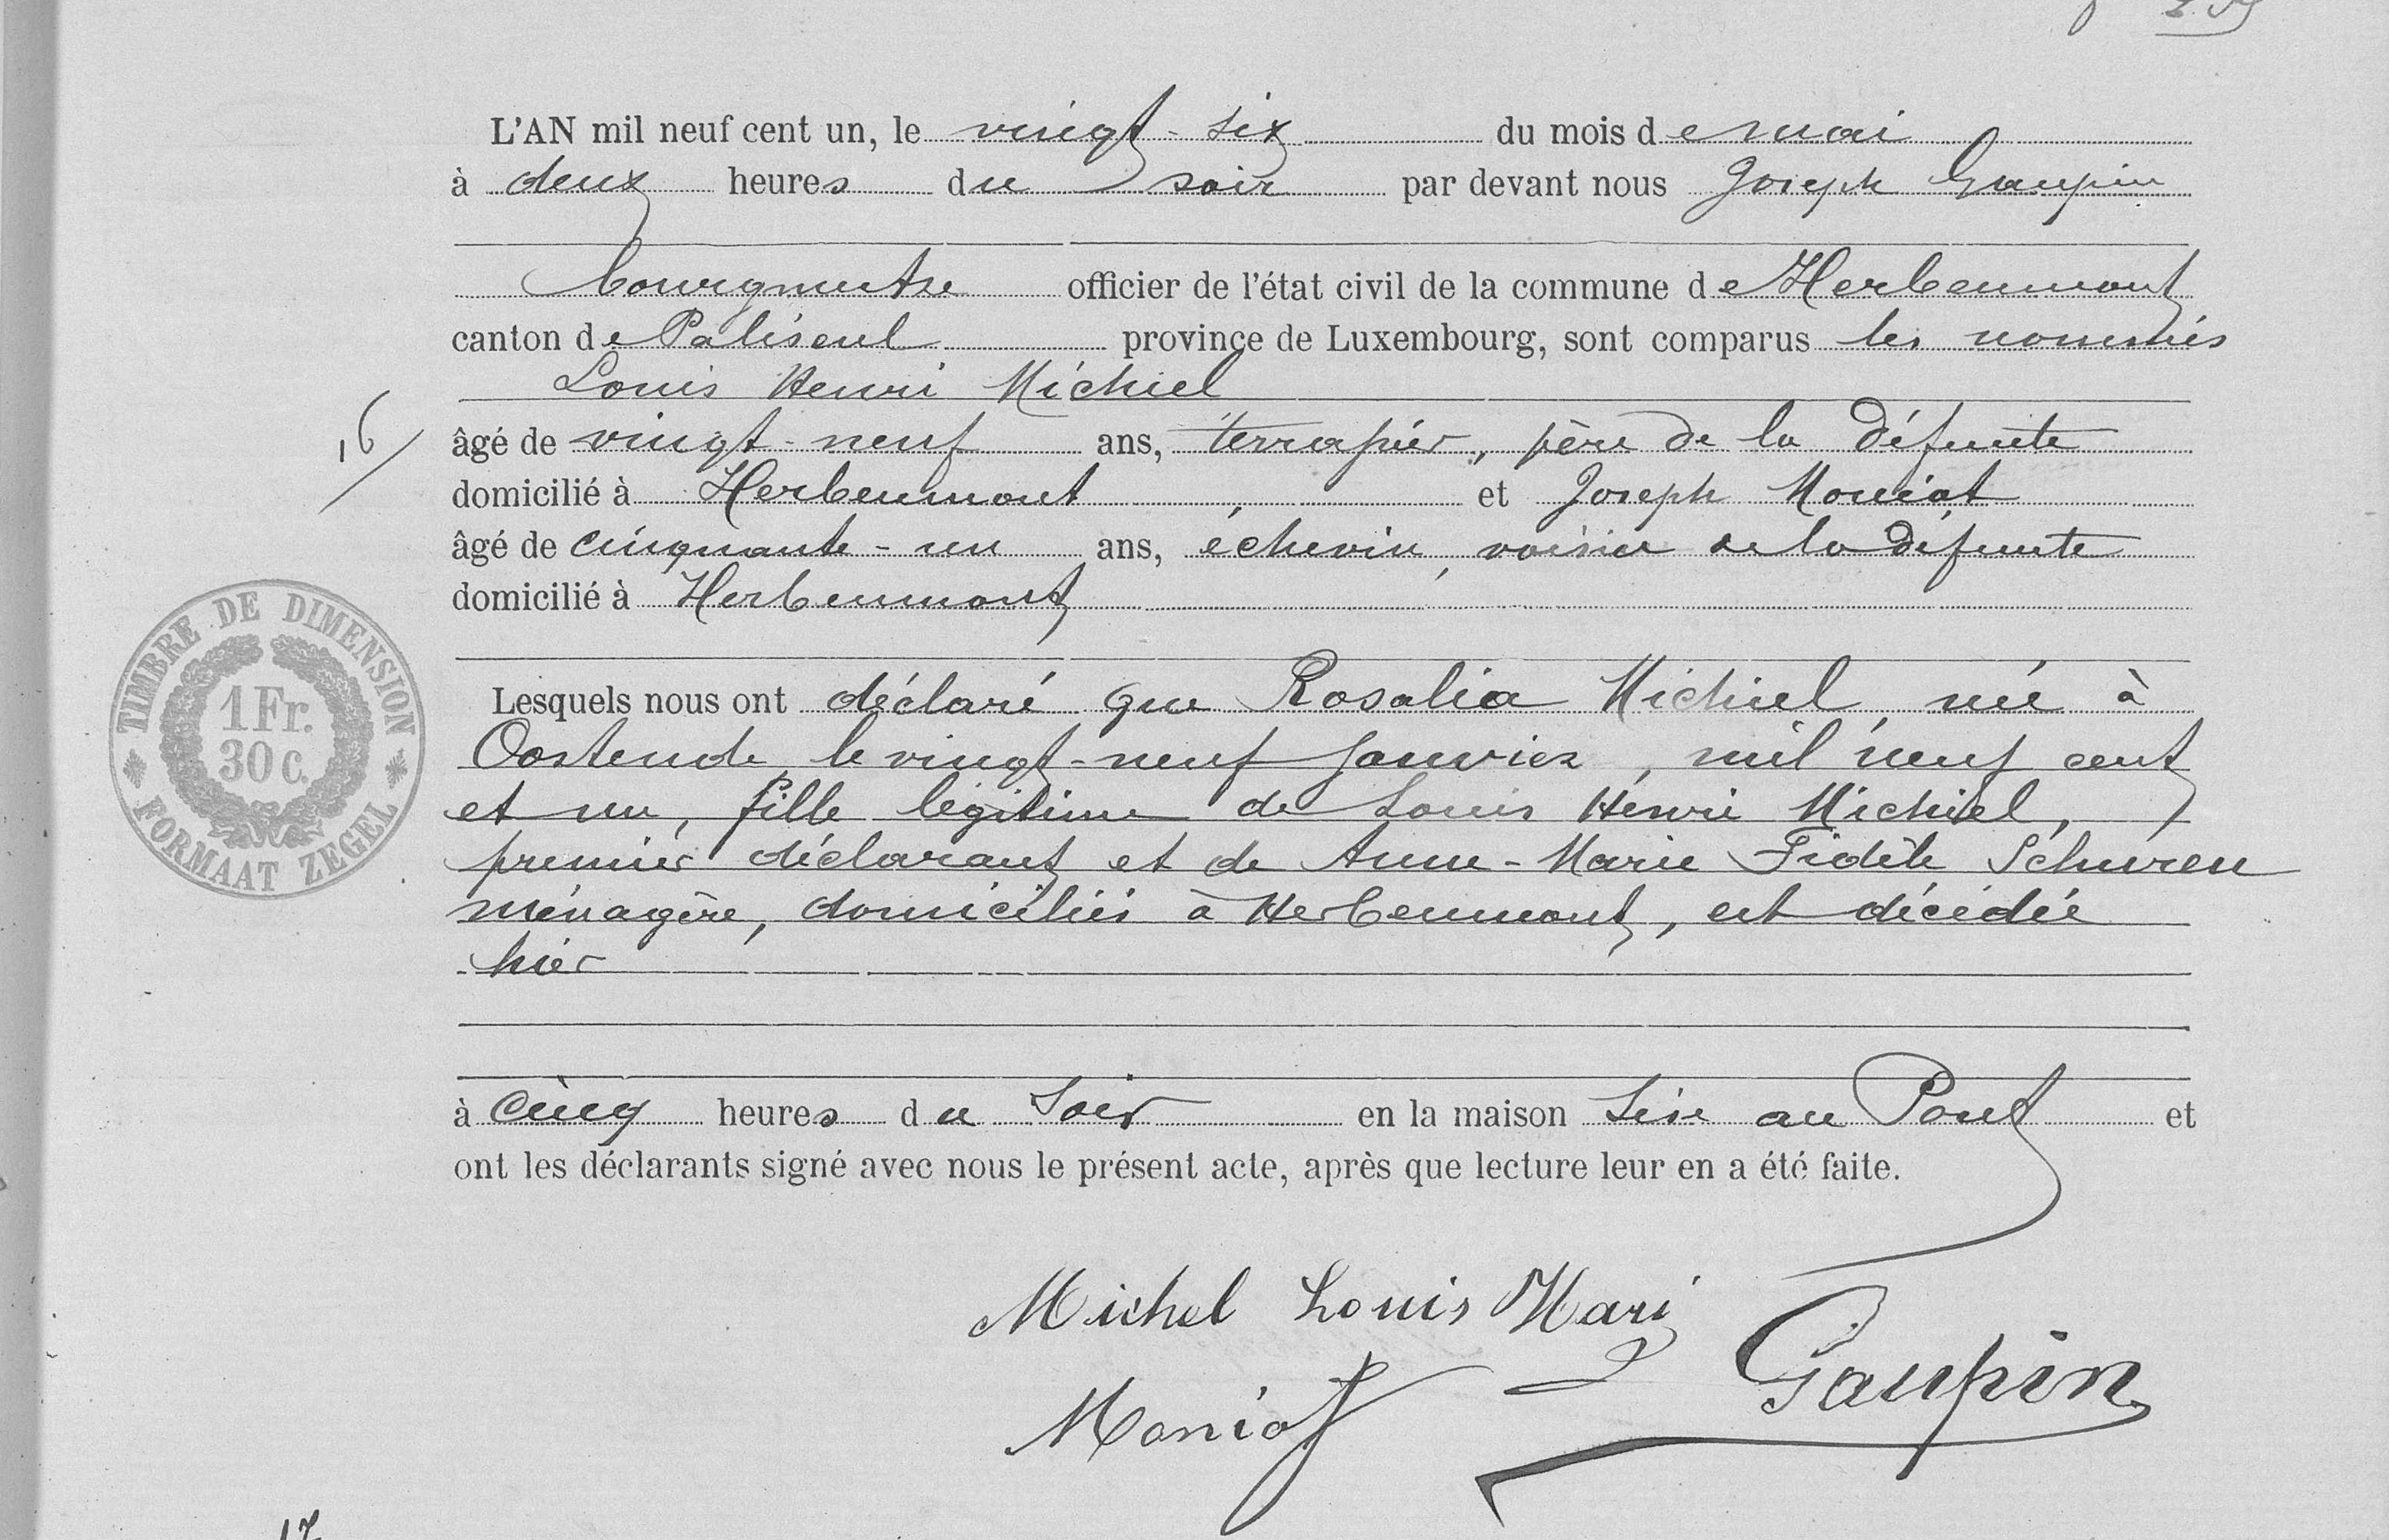 L'AN mil neuf cent un, le vingt-six du mois de mai
à deux heures du soir par devant nous Joseph Gaupin
bourgmestre officier de l'état civil de la commune de Herbeumont
canton de Paliseul province de Luxembourg, sont comparus les nommés
Louis Henri Michiel
16/
âgé de vingt-neuf ans, terrassier, père de la défunte
domicilié à Herbeumont et Joseph Moniot
âgé de cinquante-un ans, échevin, voisin de la défunte
domicilié à Herbeumont
TIMBRE DE DIMENSION
1 Fr.
30 c.
FORMAAT ZEGEL
Lesquels nous ont déclaré que Rosalia Michiel, née à
Oostende le vingt-neuf janvier, mil neuf cent
et un, fille légitime de Louis Henri Michiel,
premier déclarant et de Anne-Marie Fidèle Schuren
ménagère, domiciliés à Herbeumont, est décédée
hier
à cinq heures du soir en la maison sise au Pont et
ont les déclarants signé avec nous le présent acte, après que lecture leur en a été faite.
Michel Louis Hari
Gaupin
Moniot
17